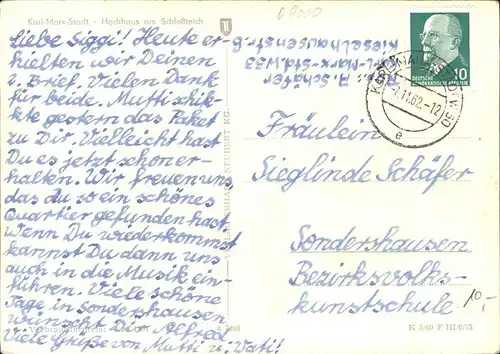 Karl-Marx-Stadt - Hochhaus am Schloßteich
Liebe Siggi! Heute er-
hielten wir Deinen
2. Brief. Vielen Dank
für beide. Mutti schik-
kte gestern das Paket
zu Dir. Vielleicht hast
Du es jetzt schon er-
halten. Wir freuen uns,
das du so ein schönes
Quartier gefunden hast.
Wenn Du wiederkommst
kannst Du dann uns
auch in die Musik ein-
führen. Viele schöne
Tage in Sondershausen
wünscht Dir Alfred
Viele Grüße von Mutti u. Vati!
A. Schäfer
Karl-Marx-Std. W33
Kieselhausenstr. 6
DEUTSCHE
DEMOKRATISCHE REPUBLIK
10
-7.11.62-12
e
Fräulein
Sieglinde Schäfer
Sondershausen
Bezirksvolks-
kunstschule
10,-
K 3/60 F III/6/75